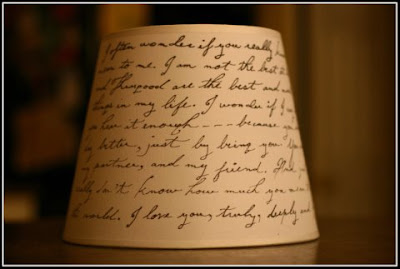 I often wonder if you really
to me. I am not the best
and are the best and
things in my life. I wonder if I
you hear it enough ---- because you
by better, just by being you
my partner, and my friend. And
really don't know how much you
the world. I love you, truly, deeply and